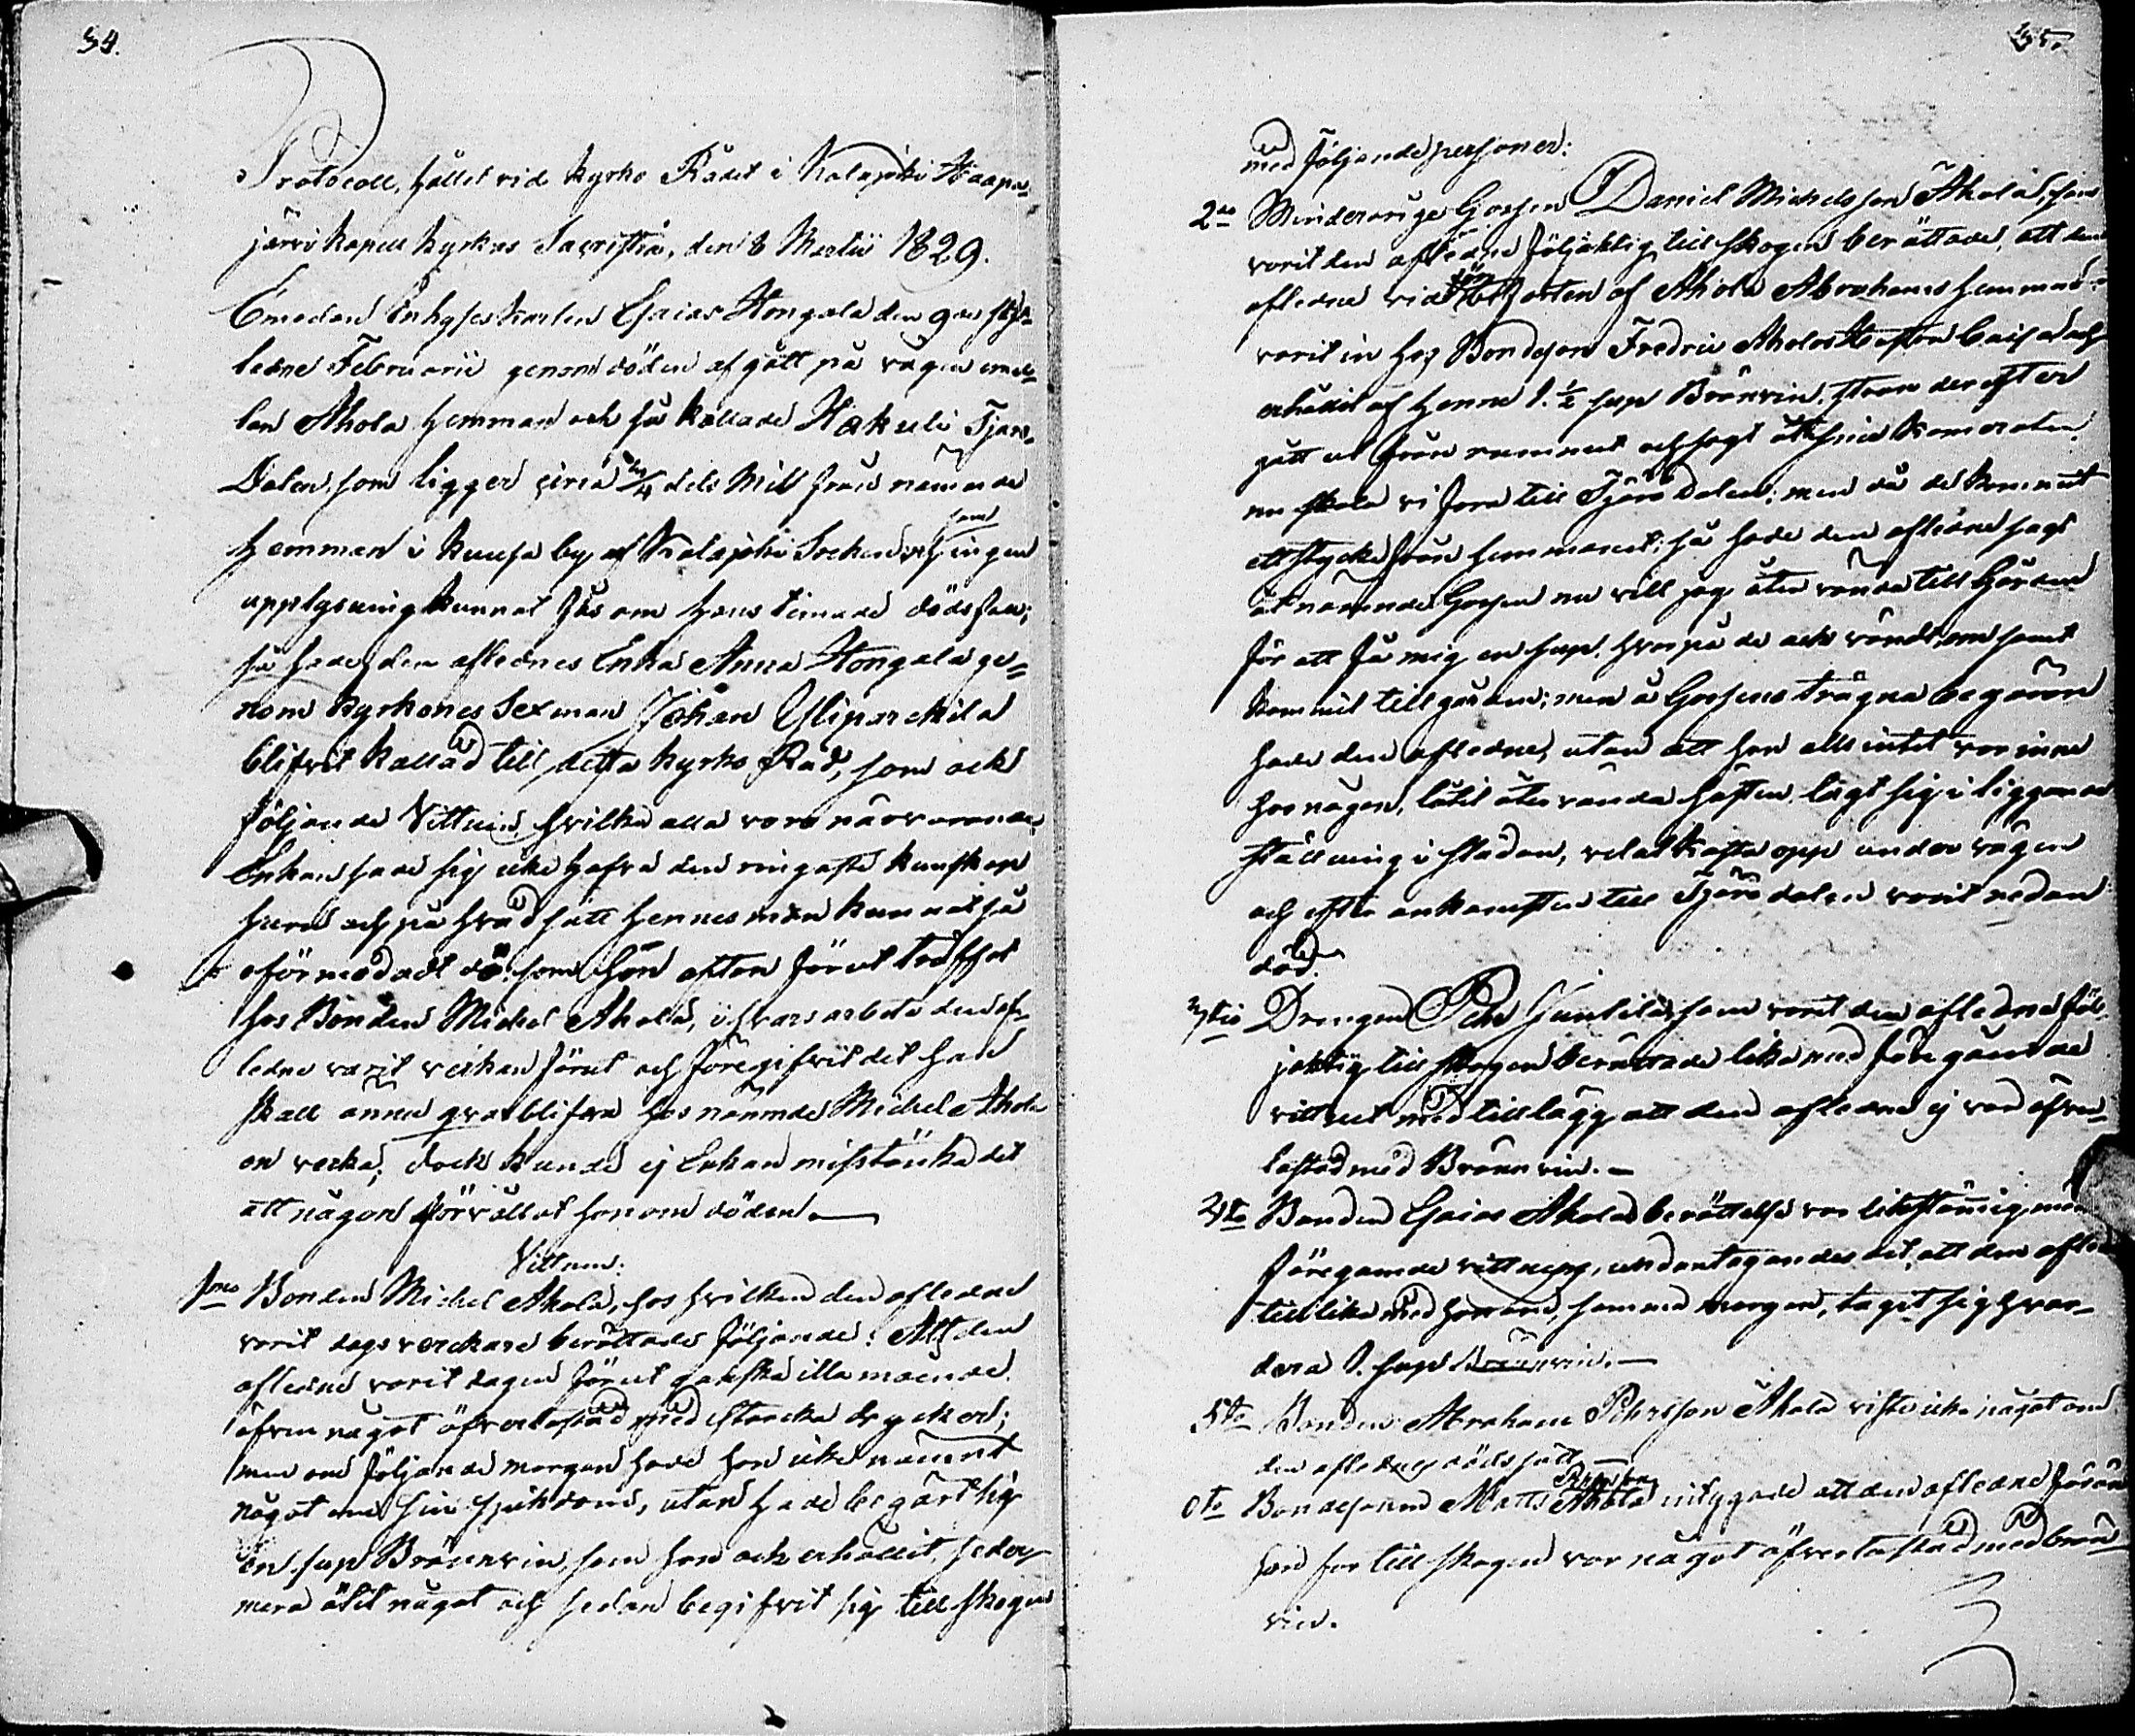 34.
Protocoll, hållet vid Kyrko Rådet i Kalajoki Haapa=
järvi Kapell Kyrkas Sacristia, den 8 Martii 1829.
Emedan Inhyses Karlen Esaias Hongala den 9de sist=
ledne Februarii genom döden afgått på vägen emel=
lan Ahola hemman och så kallade Hakuli Tjäru
Dalen, som ligger circa 3/4 dels Mill från nämnde
hemman i Kuusa by af Kalajoki Socken och ingen
upplysning kunnat fås om hans timade dödsfall;
så hade den aflednes Enka Anna Hongala ge=
nom Kyrkones Sexman Johan Yliparckila
blifvit kallad till detta Kyrko Råd, som ock
följande Vittnen, hvilka alla voro närvarande.
Enkan sade sig icke hafva den ringaste kunskap
huru och på hvad sätt hennes man kunnat så
oförmodadt dö, som hon aftan förut träffat
hos Bonden Michel Ahola, i hvars arbete den af=
ledne varit veckan förut och föregifvit det han
skall ännu qvarblifva hos nämnde Michel Ahola
en vecka; dock kunde ej Enkan misstänka det
att någon förvållat honom döden.—
Vittnen:
1mo Bonden Michel Ahola, hos hvilken den afledne
varit dagsverckare berättade följande: Att den
afledne varit dagen förut ganska illa mående
äfven något öfverlastad med starcka drycker;
men om följande morgon hade han icke nämnt
något om sin sjukdom, utan hade begärt sig
en sup Bränvin, som han ock erhållit, seder=
mera ätit något och sedan begifvit sig till skogen
35.
med följande personer:
2do Minderårige Gossen Daniel Michelsson Ahola, som
varit den afledne följaktig till skogen berättade, att den
afledne vid bortfarten af Ahola Abrahams hemman
varit in hos Bondeson Fredric Aholas Hustru Caisa och
erhållit af henne 1. 1/2 sup Bränvin, strax derefter
gått ut från rummet och sagt åt sina Kamerater:
nu skola vi fara till Tjäru Dalen; men då de kommit
ett stycke från hemmanet; så hade den afledne sagt
åt nämnde Gossen nu vill jag åter vända till Gården
för att få mig en sup, hvarpå de ock vändt om samt
kommit till gården; men å Gossens trägna begäran
hade den afledne, utan att han alls intet var inne
hos någon, låtit åter vända hästen, lagt sig i liggande
ställning i släden, velat kasta opp under vägen
och efter ankomsten till Tjäru dalen varit redan
död.
3tio Drengen Pehr Junttila, som varit den afledne föl=
jaktig till skogen berättade lika med föregående
vittnet med tillägg att den afledne ej var öfver=
lastad med Brännvin.—
4to Bonden Esaias Aholas berättelse var likstämmig med
föregående vittnens, undantagandes det, att den afledne
tillika med honom, samma morgon, tagit sig hvar=
dera 1. sup Brännvin.—
5to Bonden Abraham Pehrsson Ahola viste icke något om
den aflednes dödssätt.—
6to Bondesonen Matts Ahola intygade att den afledne förän
han for till skogen var något öfverlastad med brän
vin.